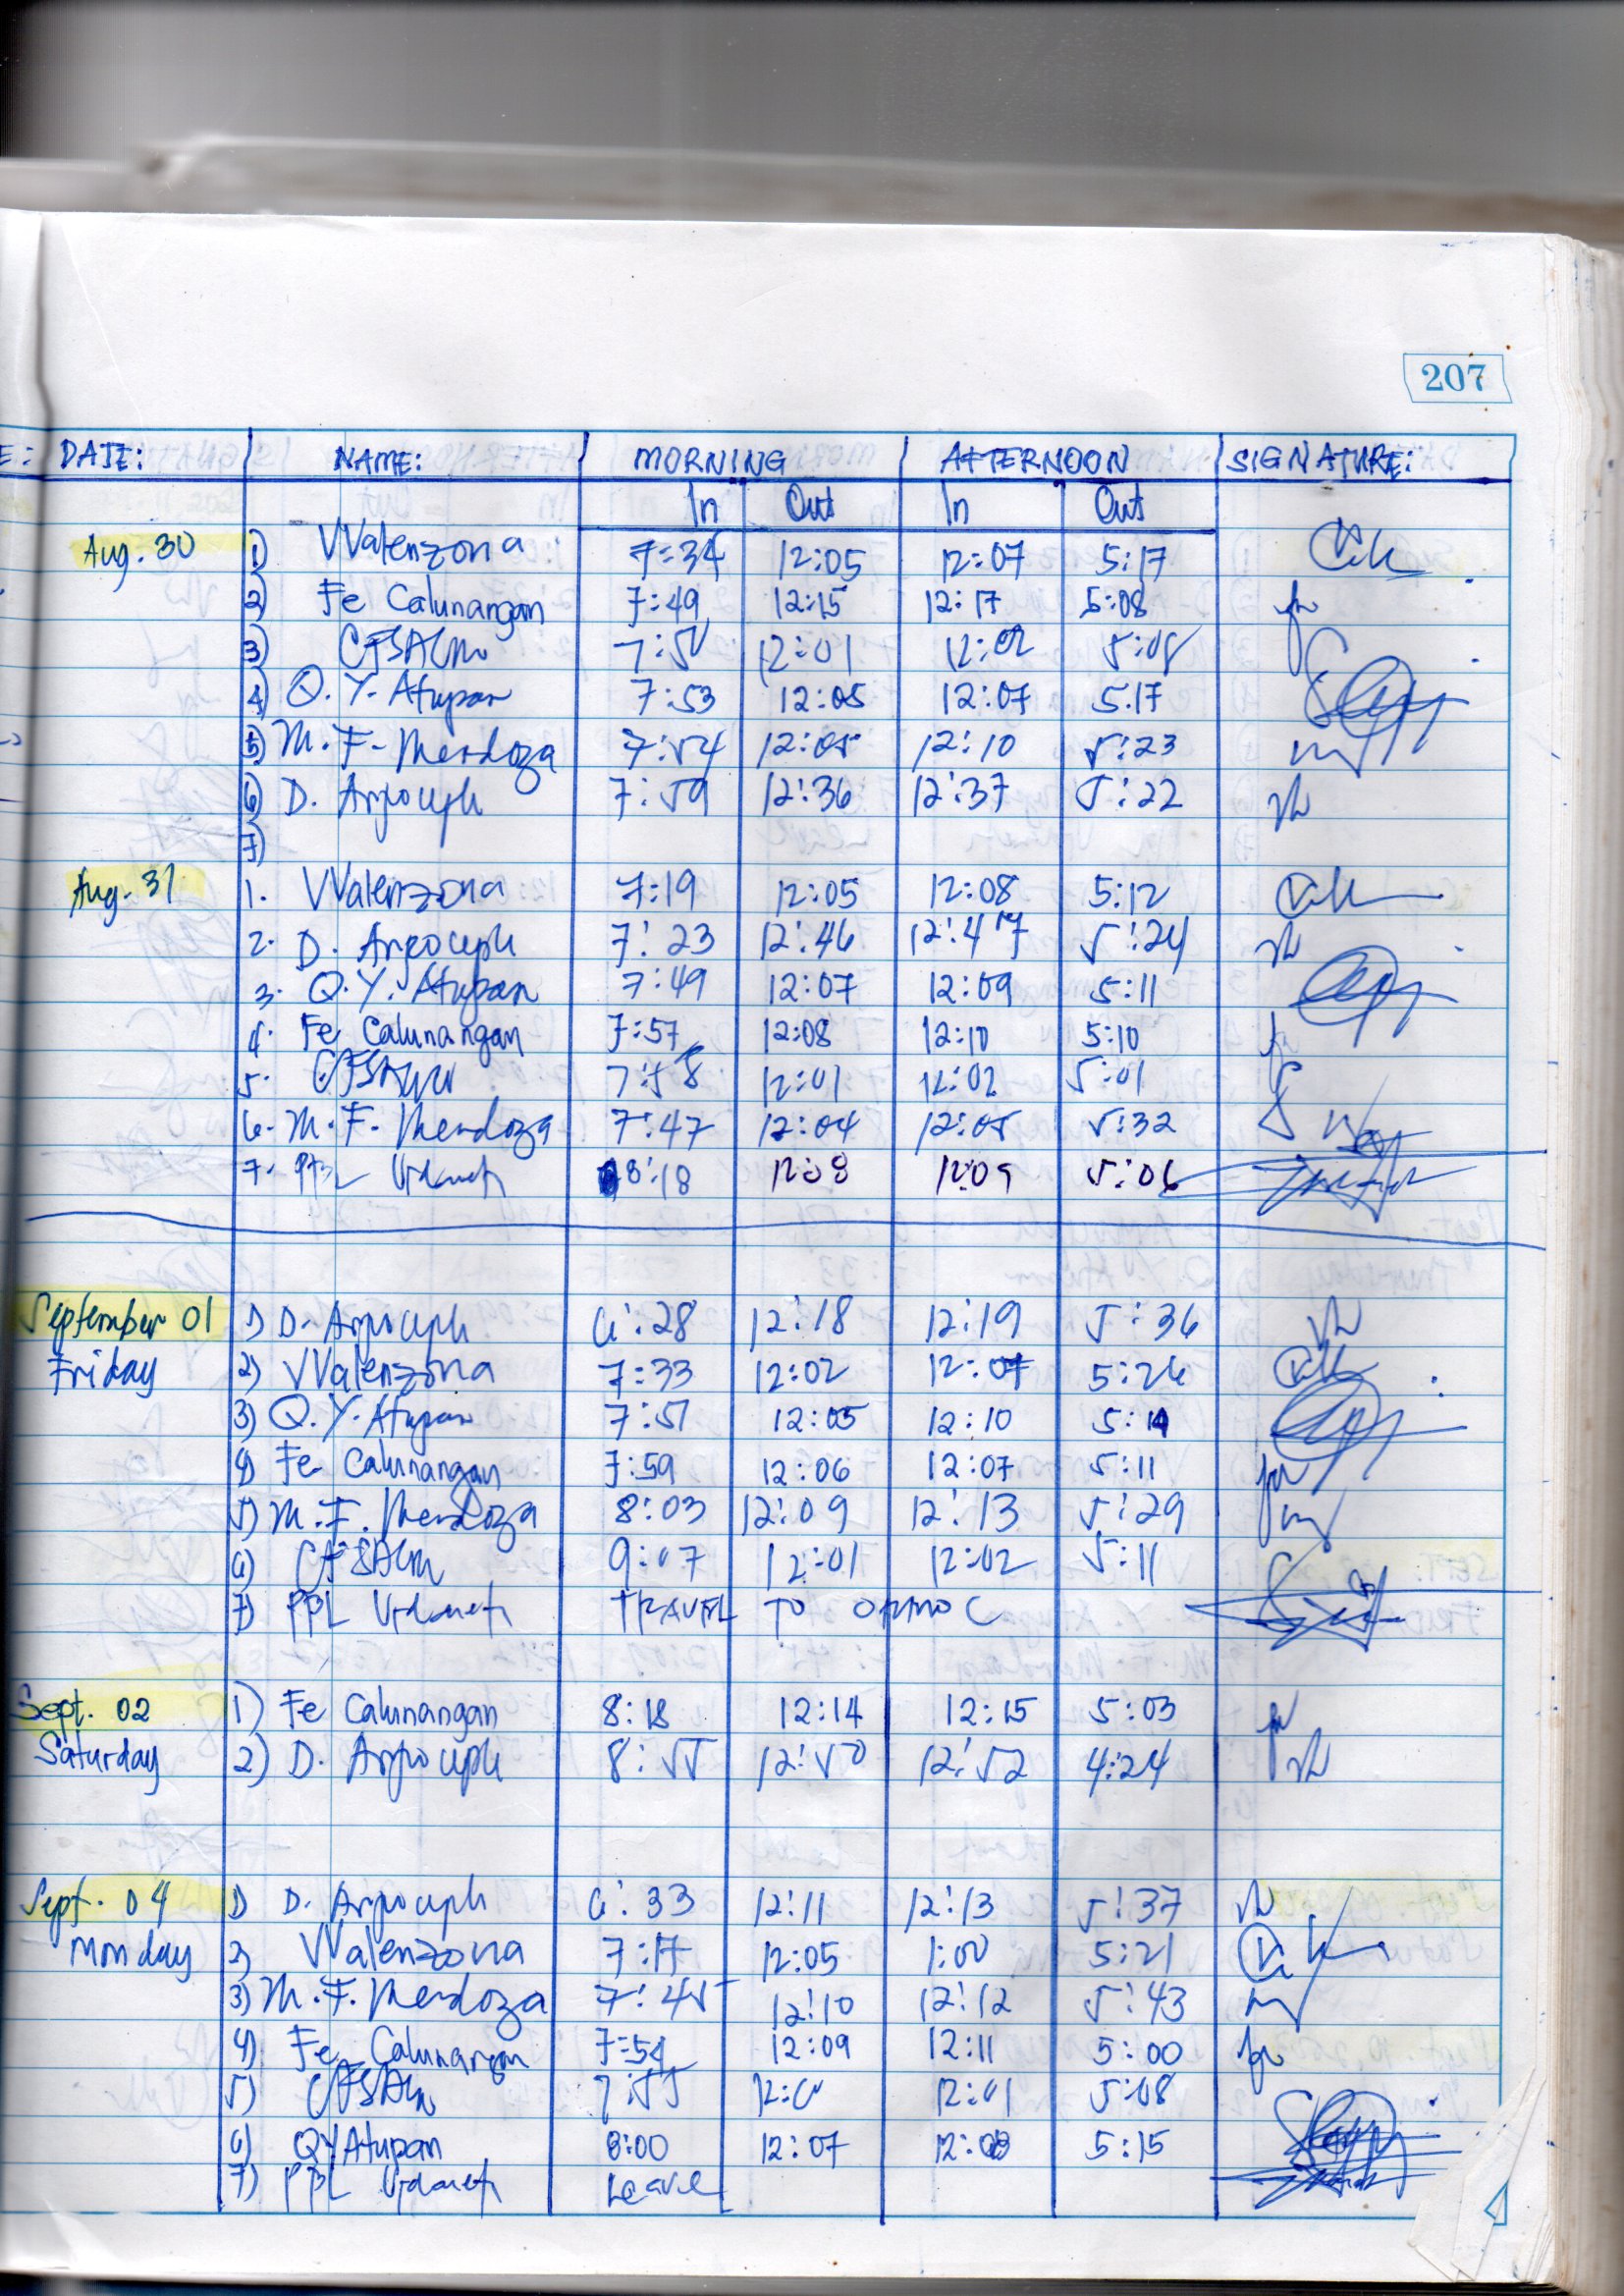 207
DATE: NAME: MORNING AFTERNOON SIGNATURE:
In Out In Out
Aug. 30 1) VValenzona 7:34 12:05 12:07 5:17
2) Fe Calunangan 7:49 12:15 12:17 5:08
3) 12:01 12:02
4) Q. Y. Atupan 7:53 12:05 12:07 5:17
5) M. F. Mendoza 7:54 12:05 12:10 5:23
6) D. 7:59 12:36 12:37 5:22
7)
Aug. 31 1. VValenzona 7:19 12:05 12:08 5:12
2. D. 7:23 12:46 12:47 5:24
3. Q. Y. Atupan 7:49 12:07 12:09 5:11
4. Fe Calunangan 7:57 12:08 12:10 5:10
5. 7:58 12:01 12:02 5:01
6. M. F. Mendoza 7:47 12:04 12:05 5:32
7. 8:18 12:08 12:09 5:06
September 01 1) D. 6:28 12:18 12:19 5:36
Friday 2) VValenzona 7:33 12:02 12:07 5:26
3) Q. Y. Atupan 7:51 12:05 12:10
4) Fe Calunangan 7:59 12:06 12:07 5:11
5) M. F. Mendoza 8:03 12:09 12:13 5:29
6) 9:07 12:01 12:02 5:11
7) PBL TRAVEL TO ORMOC
Sept. 02 1) Fe Calunangan 8:18 12:14 12:15 5:03
Saturday 2) D. 8:55 12:50 12:52 4:24
Sept. 04 1) D. 6:33 12:11 12:13 5:37
Monday 2) VValenzona 7:17 12:05 1:00 5:21
3) M. F. Mendoza 7:45 12:10 12:12 5:43
4) Fe Calunangan 7:54 12:09 12:11 5:00
5) 7:55 12:01 5:08
6) QYAtupan 8:00 12:07 12:08 5:15
7) PBL Leave